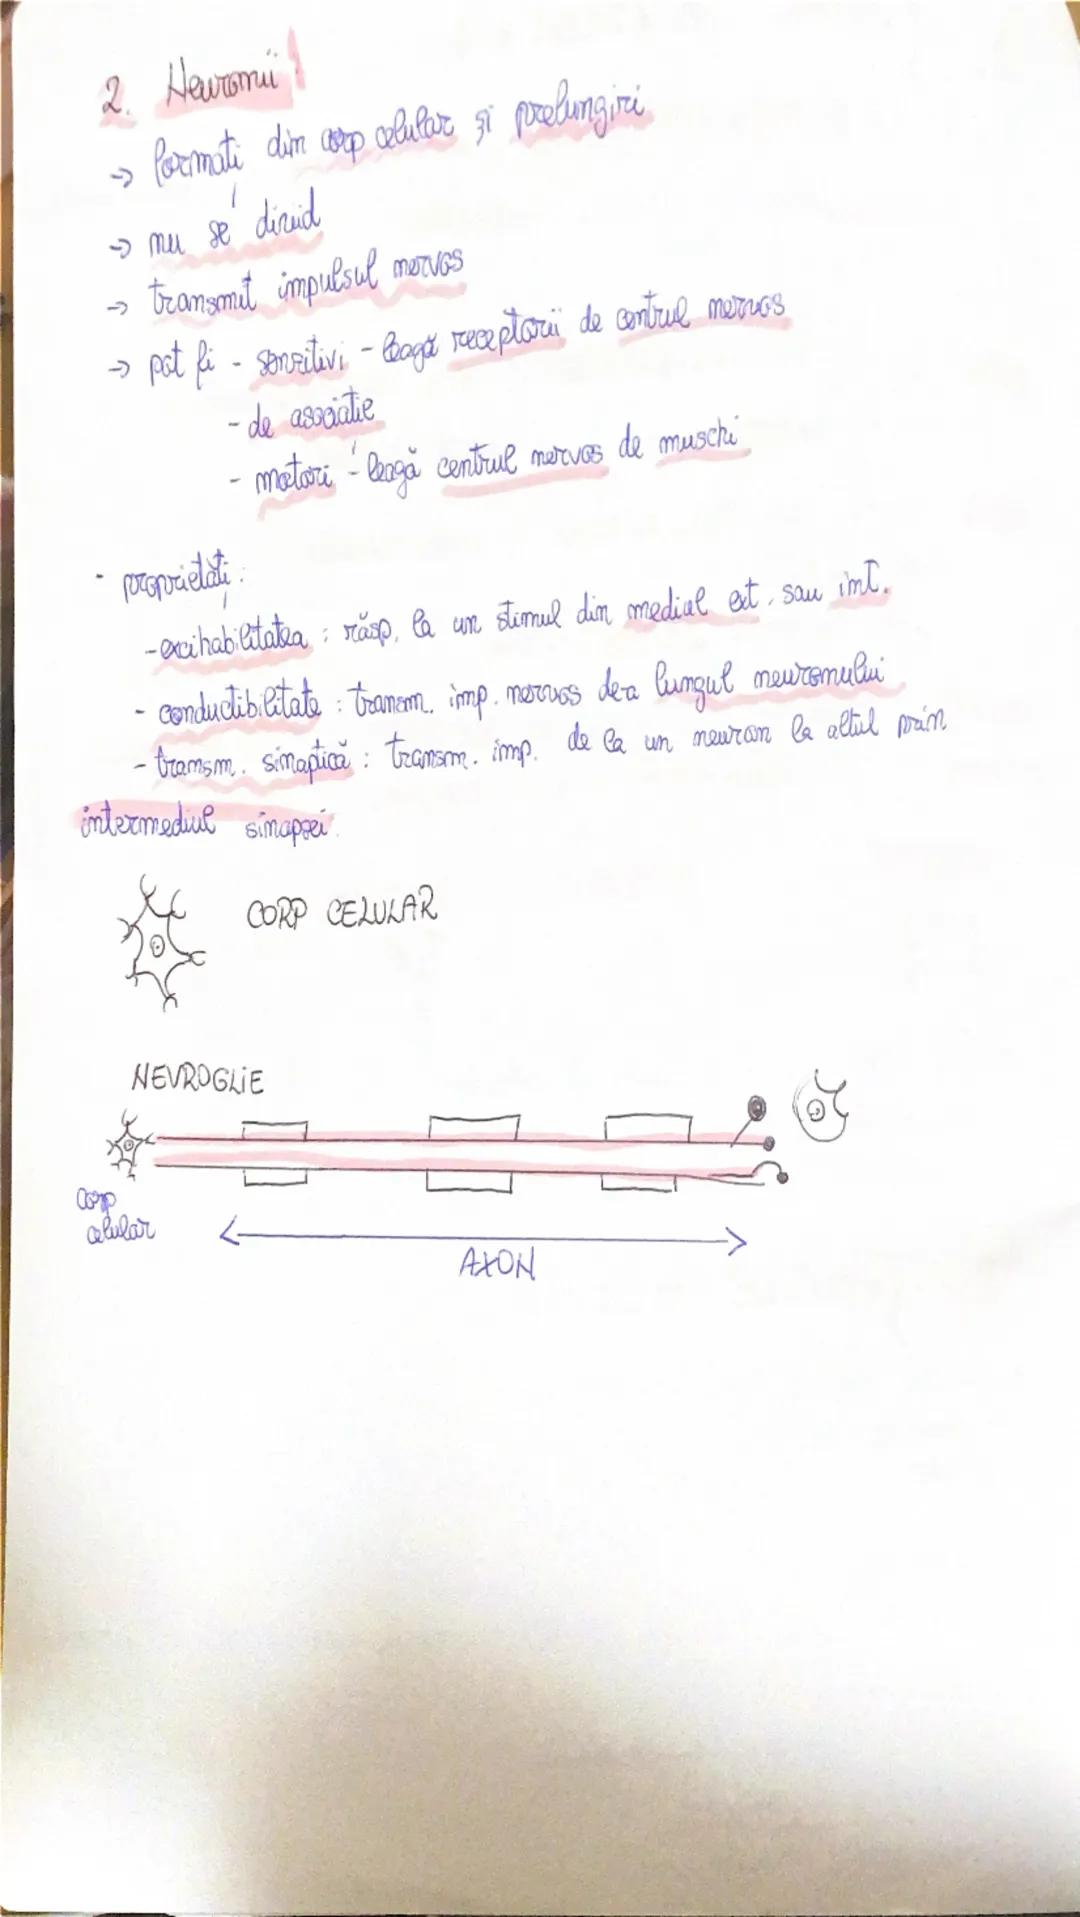 2. Neuronii!
→ formați din corp celular și prelungiri
→ nu se divid
→ transmit impulsul nervos
→ pot fi - senzitivi - leagă receptorii de centrul nervos
- de asociație
- motori - leagă centrul nervos de muschi
- proprietăți:
- excihabilitatea : răsp. la un stimul din mediul ext. sau int.
- conductibilitate : transm. imp. nervos de-a lungul neuronului
- transm. sinaptică : transm. imp. de la un neuron la altul prin
intermediul sinapsei.
CORP CELULAR
NEVROGLIE
corp
celular
AXON